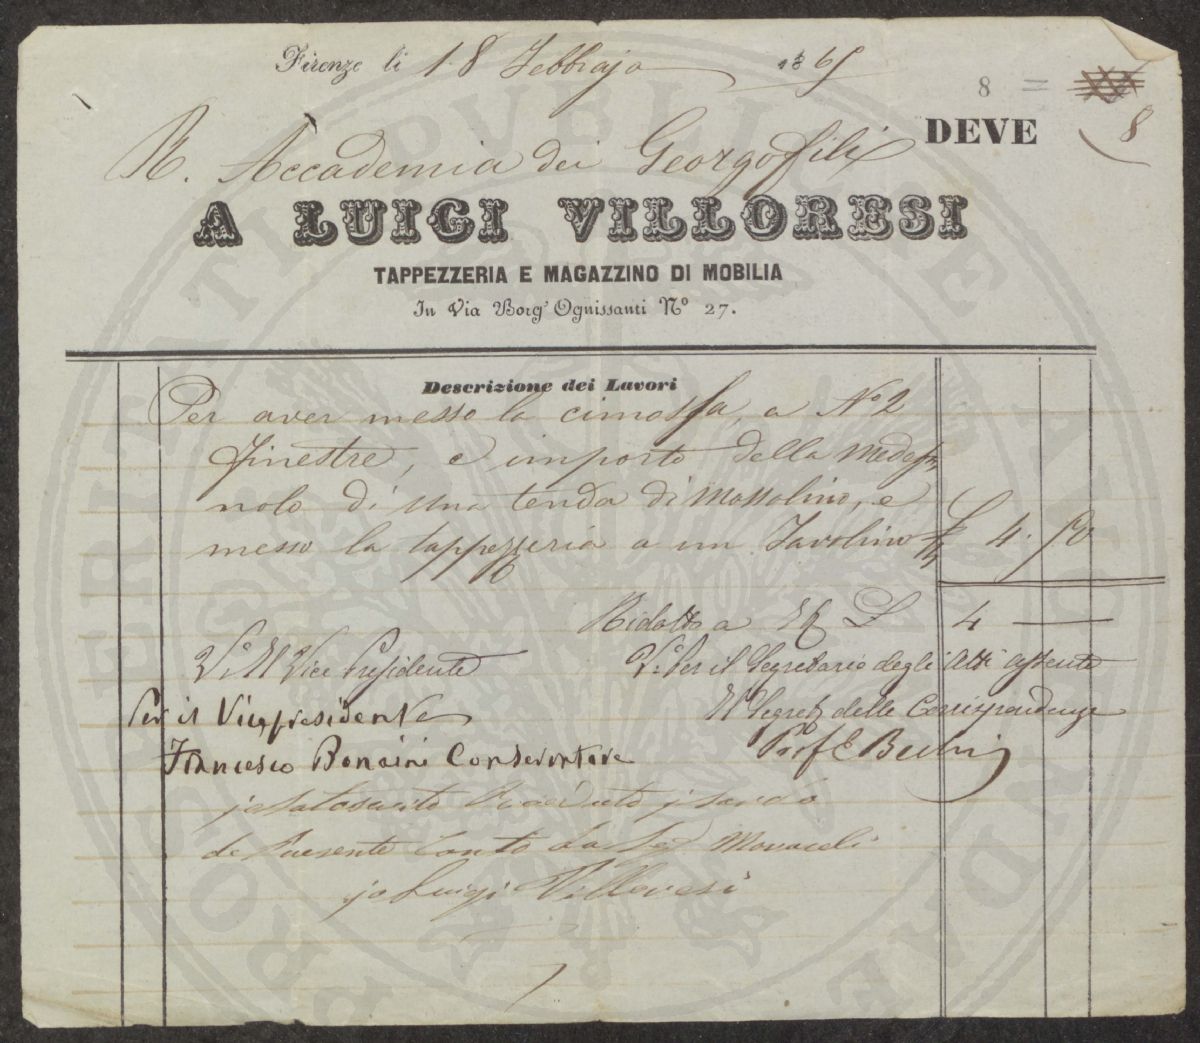 Firenze li 18 Febbrajo 1865
8 =
8
DEVE
R. Accademia dei Georgofili
A LUIGI VILLORESI
TAPPEZZERIA E MAGAZZINO DI MOBILIA
In Via Borg' Ognissanti Nº 27.
Descrizione dei Lavori
Per aver messo la cimossa, a Nº 2
Finestre, e importo della Medesª,
nolo di una tenda di Mossolino, e
messo la tappezzeria a un Tavolino £ 4. 90
Ridotto a £ 4 —
Vº Il Vice Presidente
Vº Per il Segretario degli Atti assente
Per il Vicepresidente
Il Segretº delle Corrispondenze
Francesco Bonaini Conservatore
Prof E Bechi
io sotoscrito
di Presente Conto da
io Luigi Villoresi
PROSPERITATI PVBLICAE AVGENDAE